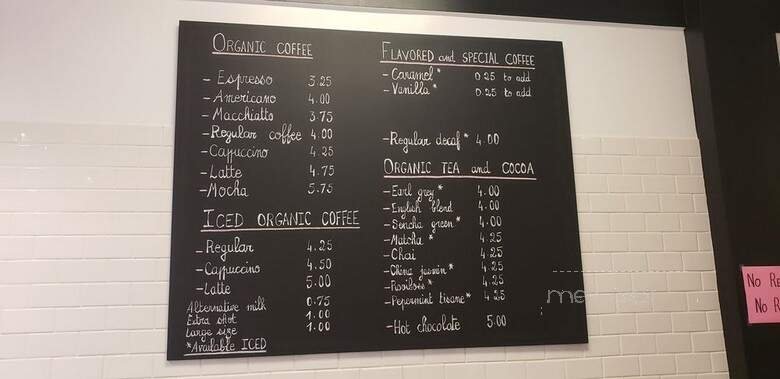 ORGANIC COFFEE
- Espresso 3.25
- Americano 4.00
- Macchiatto 3.75
- Regular coffee 4.00
- Cappuccino 4.25
- Latte 4.75
- Mocha 5.75
ICED ORGANIC COFFEE
- Regular 4.25
- Cappuccino 4.50
- Latte 5.00
Alternative milk 0.75
Extra shot 1.00
Large size 1.00
*Available ICED
FLAVORED and SPECIAL COFFEE
- Caramel * 0.25 to add
- Vanilla * 0.25 to add
- Regular decaf * 4.00
ORGANIC TEA and COCOA
- Earl grey * 4.00
- English blend 4.00
- Sencha green * 4.00
- Matcha * 4.25
- Chai 4.25
- China jasmin * 4.25
- Rooibos * 4.25
- Peppermint tisane * 4.25
- Hot chocolate 5.00
No
No